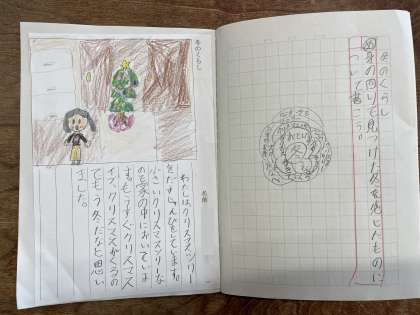 冬のくらし
め 身の回りで見つけた冬を感じたものに
ついて書こう。
冬
冬のくらし
名前
わたしはクリスマスツリー
をだすじゅんびをしています。
小さいクリスマスツリーな
のを家の中においていま
す。もうすぐクリスマス
イブ、クリスマスがくるの
でもう冬だなと思い
ました。